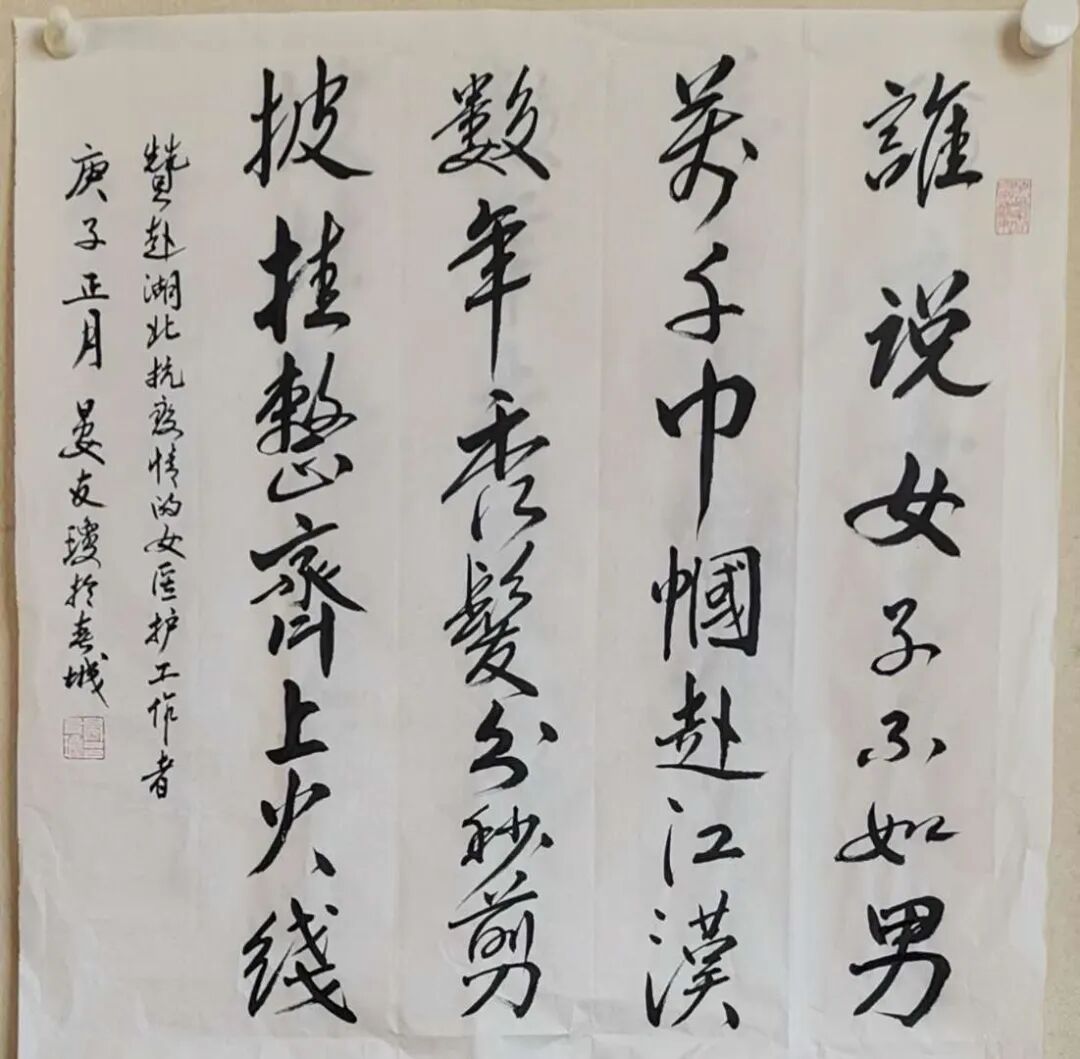 誰说女子不如男
萬千巾帼赴江漢
数年秀髮分秒剪
披挂整齊上火线
贊赴湖北抗疫情的女医护工作者
庚子正月 晏友琼於春城